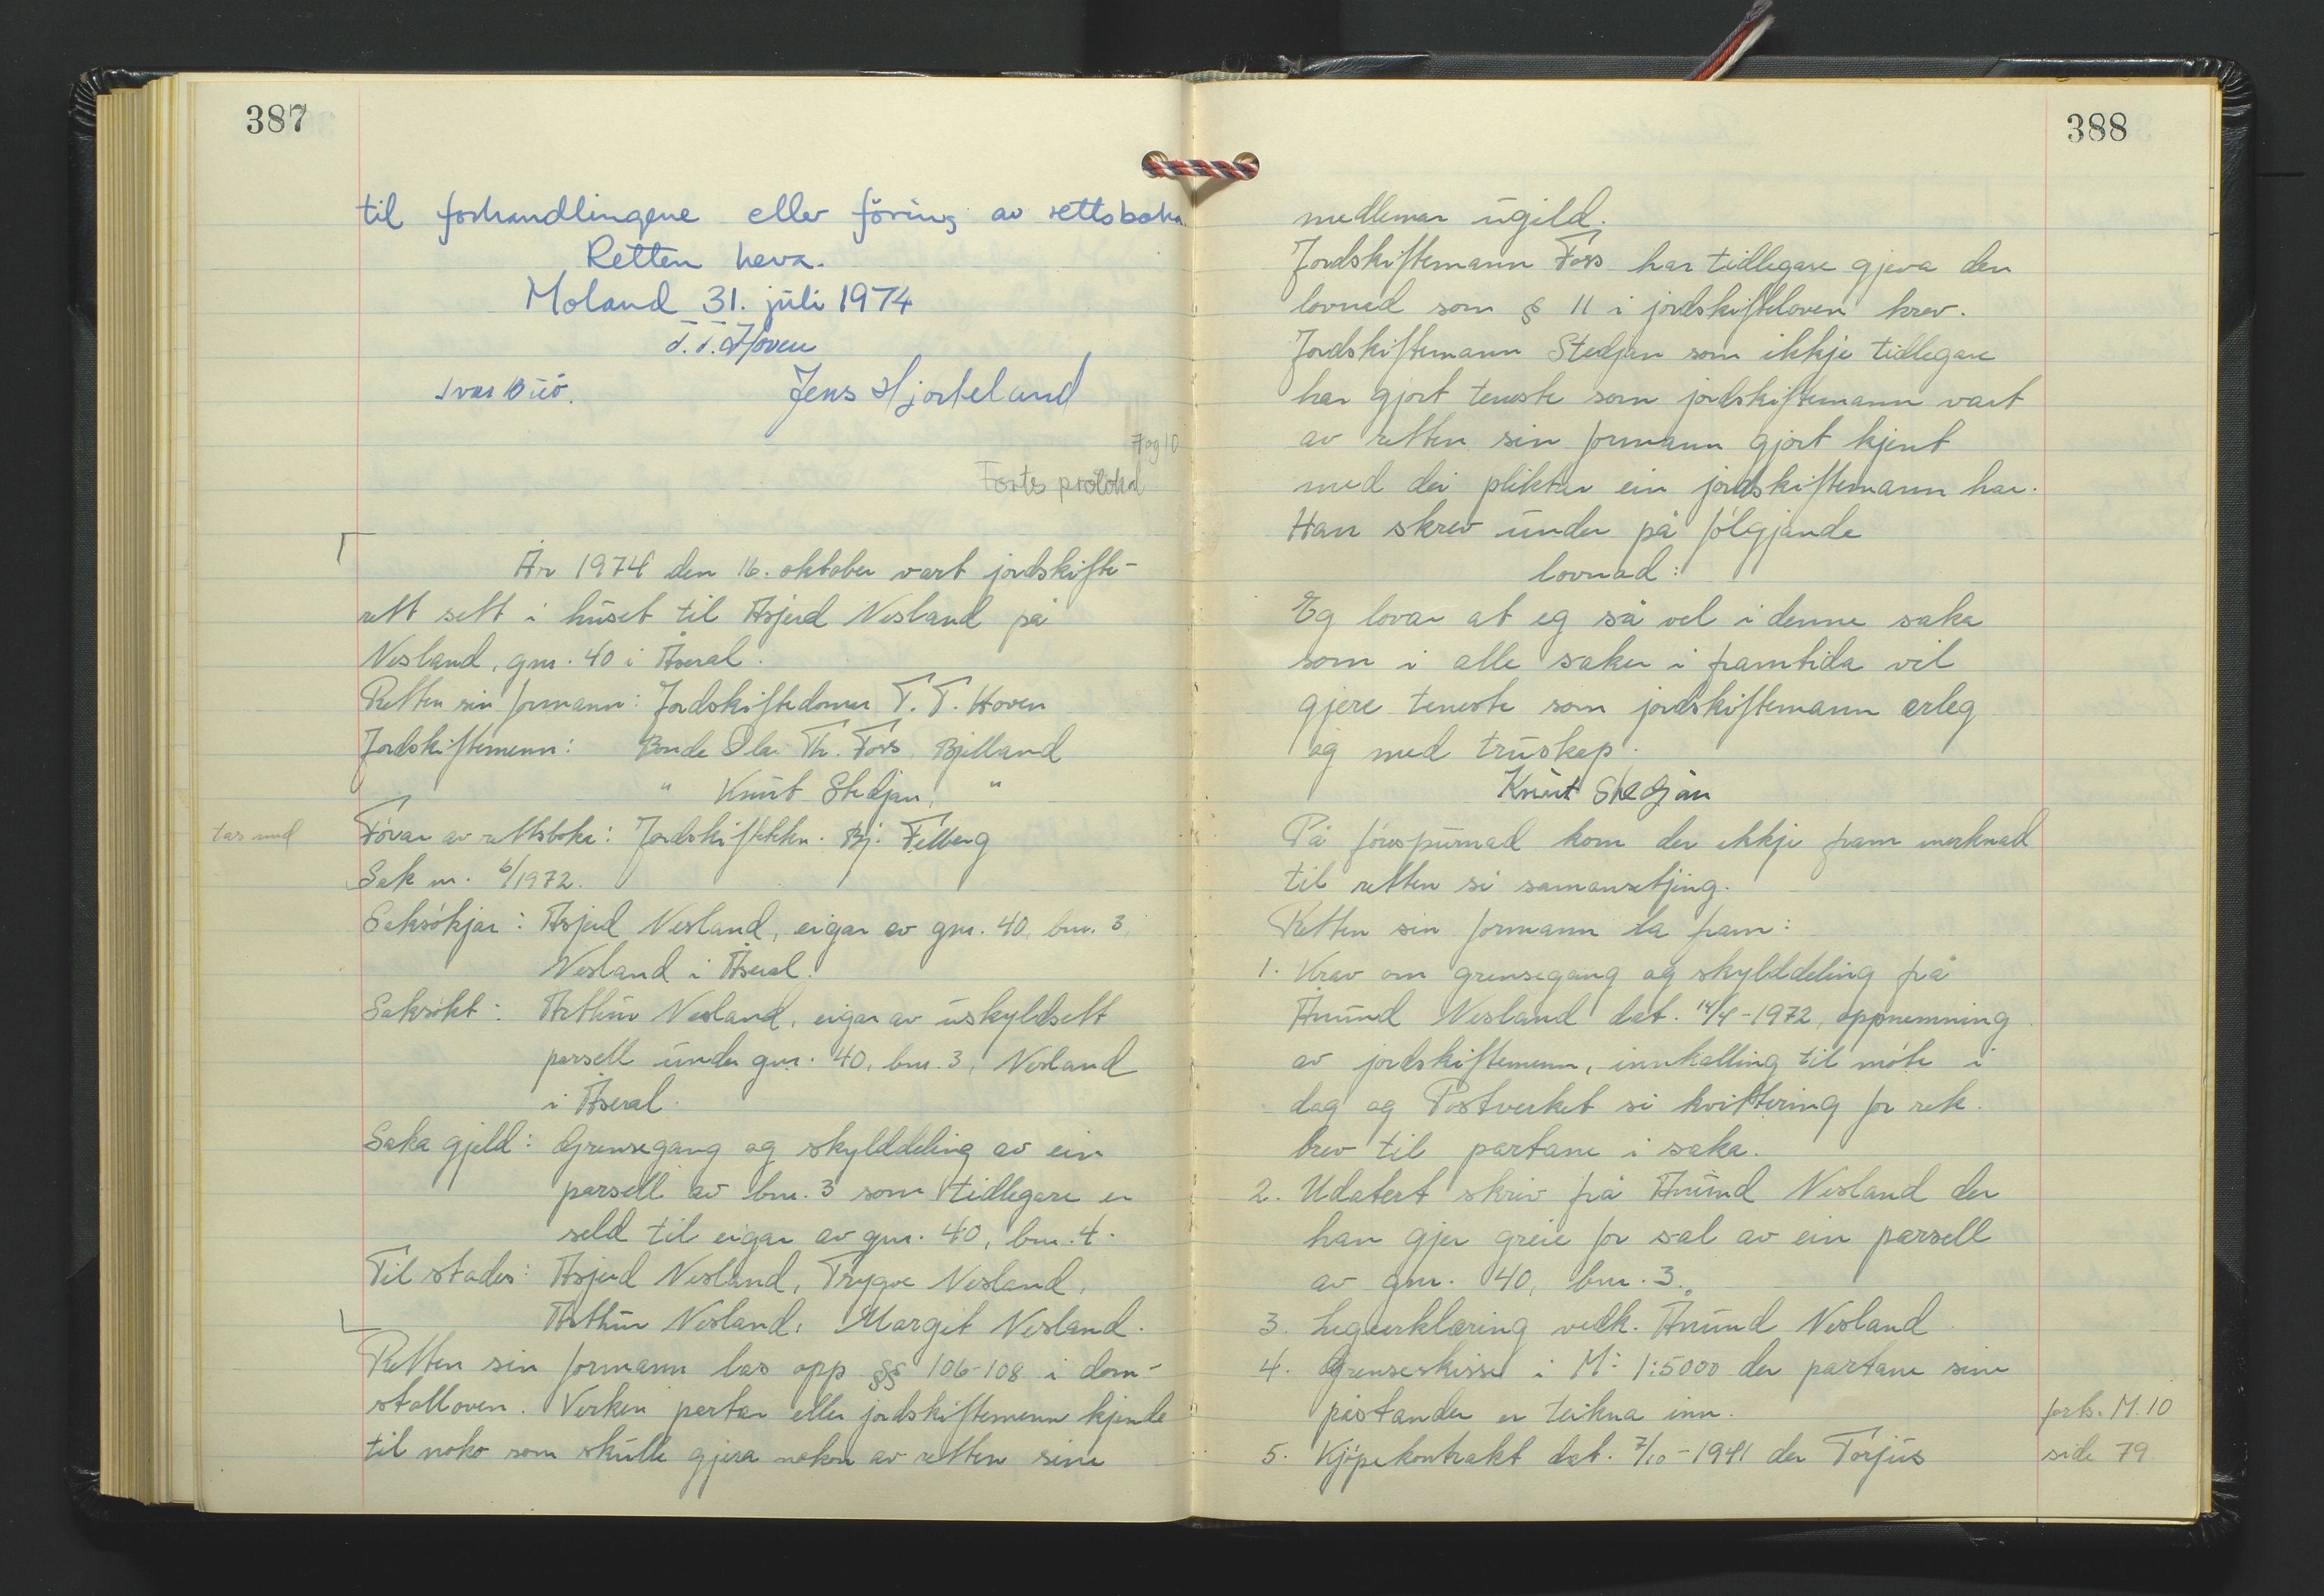 387
til forhandlingene eller föring av rettsboka
Retten heva.
Moland 31. juli 1974
T.T. Hoven
Ivar Büö. Jens Hjorteland
7 og 10
Forts protokol
År 1974 den 16. oktober vart jordskifte-
rett sett i huset til Asjerd Nesland på
Nesland, gnr. 40 i Åseral.
Retten sin formann: Jordskiftedomar T. T. Hoven
Jordskiftemenn: Bonde Ola Th. Foss, Bjelland
" Knut Stedjan, "
tas med
Förar av rettsboka: Jordskiftekkn. Bj. Felberg
Sak nr. 6/1972.
Saksökjar: Asjerd Nesland, eigar av gnr. 40, bnr. 3,
Nesland i Åseral.
Saksökt: Arthur Nesland, eigar av uskyldsett
parsell under gnr. 40, bnr. 3, Nesland
i Åseral.
Saka gjeld: Grensegang og skylddeling av ein
parsell av bnr. 3 som tidlegare er
seld til eigar av gnr. 40, bnr. 4.
Til stades: Asjerd Nesland, Trygve Nesland,
Arthur Nesland, Margit Nesland.
Retten sin formann las opp §§ 106-108 i dom-
stolloven. Verken partar eller jordskiftemenn kjende
til noko som skulle gjera nokon av retten sine
388
medlemar ugild.
Jordskiftemann Foss har tidlegare gjeva den
lovnad som § 11 i jordskifteloven krev.
Jordskiftemann Stedjan som ikkje tidlegare
har gjort teneste som jordskiftemann vart
av retten sin formann gjort kjent
med dei plikter ein jordskiftemann har.
Han skrev under på fölgjande
lovnad:
Eg lovar at eg så vel i denne saka
som i alle saker i framtida vil
gjere teneste som jordskiftemann ærleg
og med truskap.
Knut Stedjan
På förespurnad kom der ikkje fram merknad
til retten si samansetjing.
Retten sin formann la fram:
1. Krav om grensegang og skylddeling frå
Ånund Nesland dat. 14/4-1972, oppnemning
av jordskiftemenn, innkalling til möte i
dag og Postverket si kvittering for rek.
brev til partane i saka.
2. Udatert skriv frå Ånund Nesland der
han gjer greie for sal av ein parsell
av gnr. 40, bnr. 3.
3. Legeerklæring vedk. Ånund Nesland.
4. Grenseskisse i M: 1:5000 der partane sine
påstander er teikna inn.
5. Kjöpekontrakt dat. 7/10-1941 der Torjus
forts. M.10
side 79